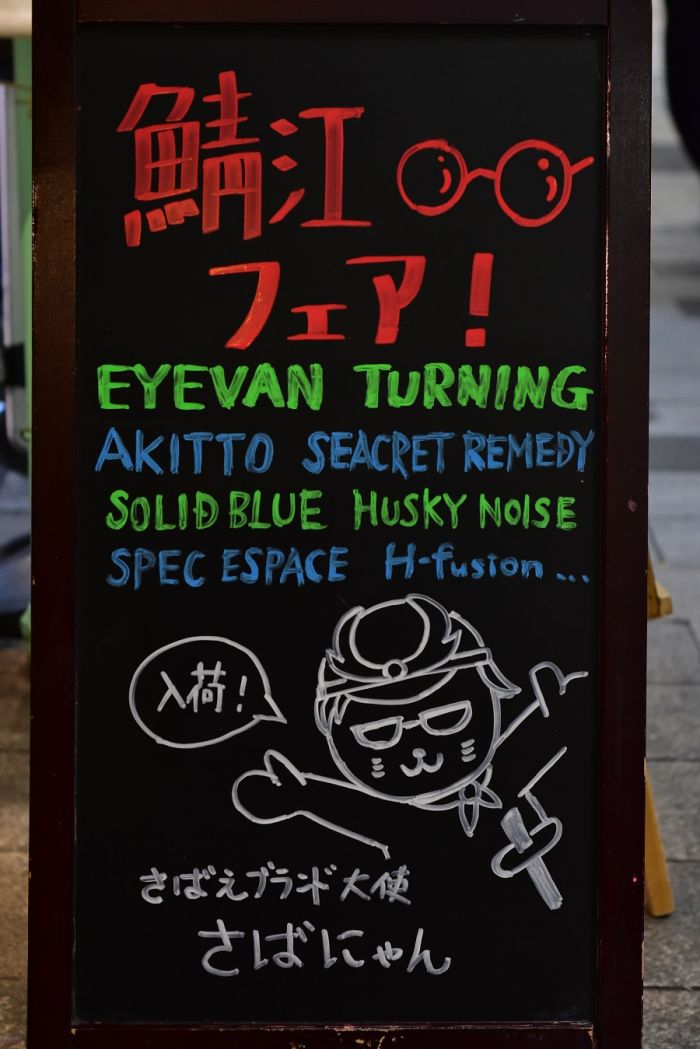 鯖江
フェア!
EYEVAN TURNING
AKITTO SEACRET REMEDY
SOLID BLUE HUSKY NOISE
SPEC ESPACE H-fusion...
入荷!
さばえブランド大使
さばにゃん